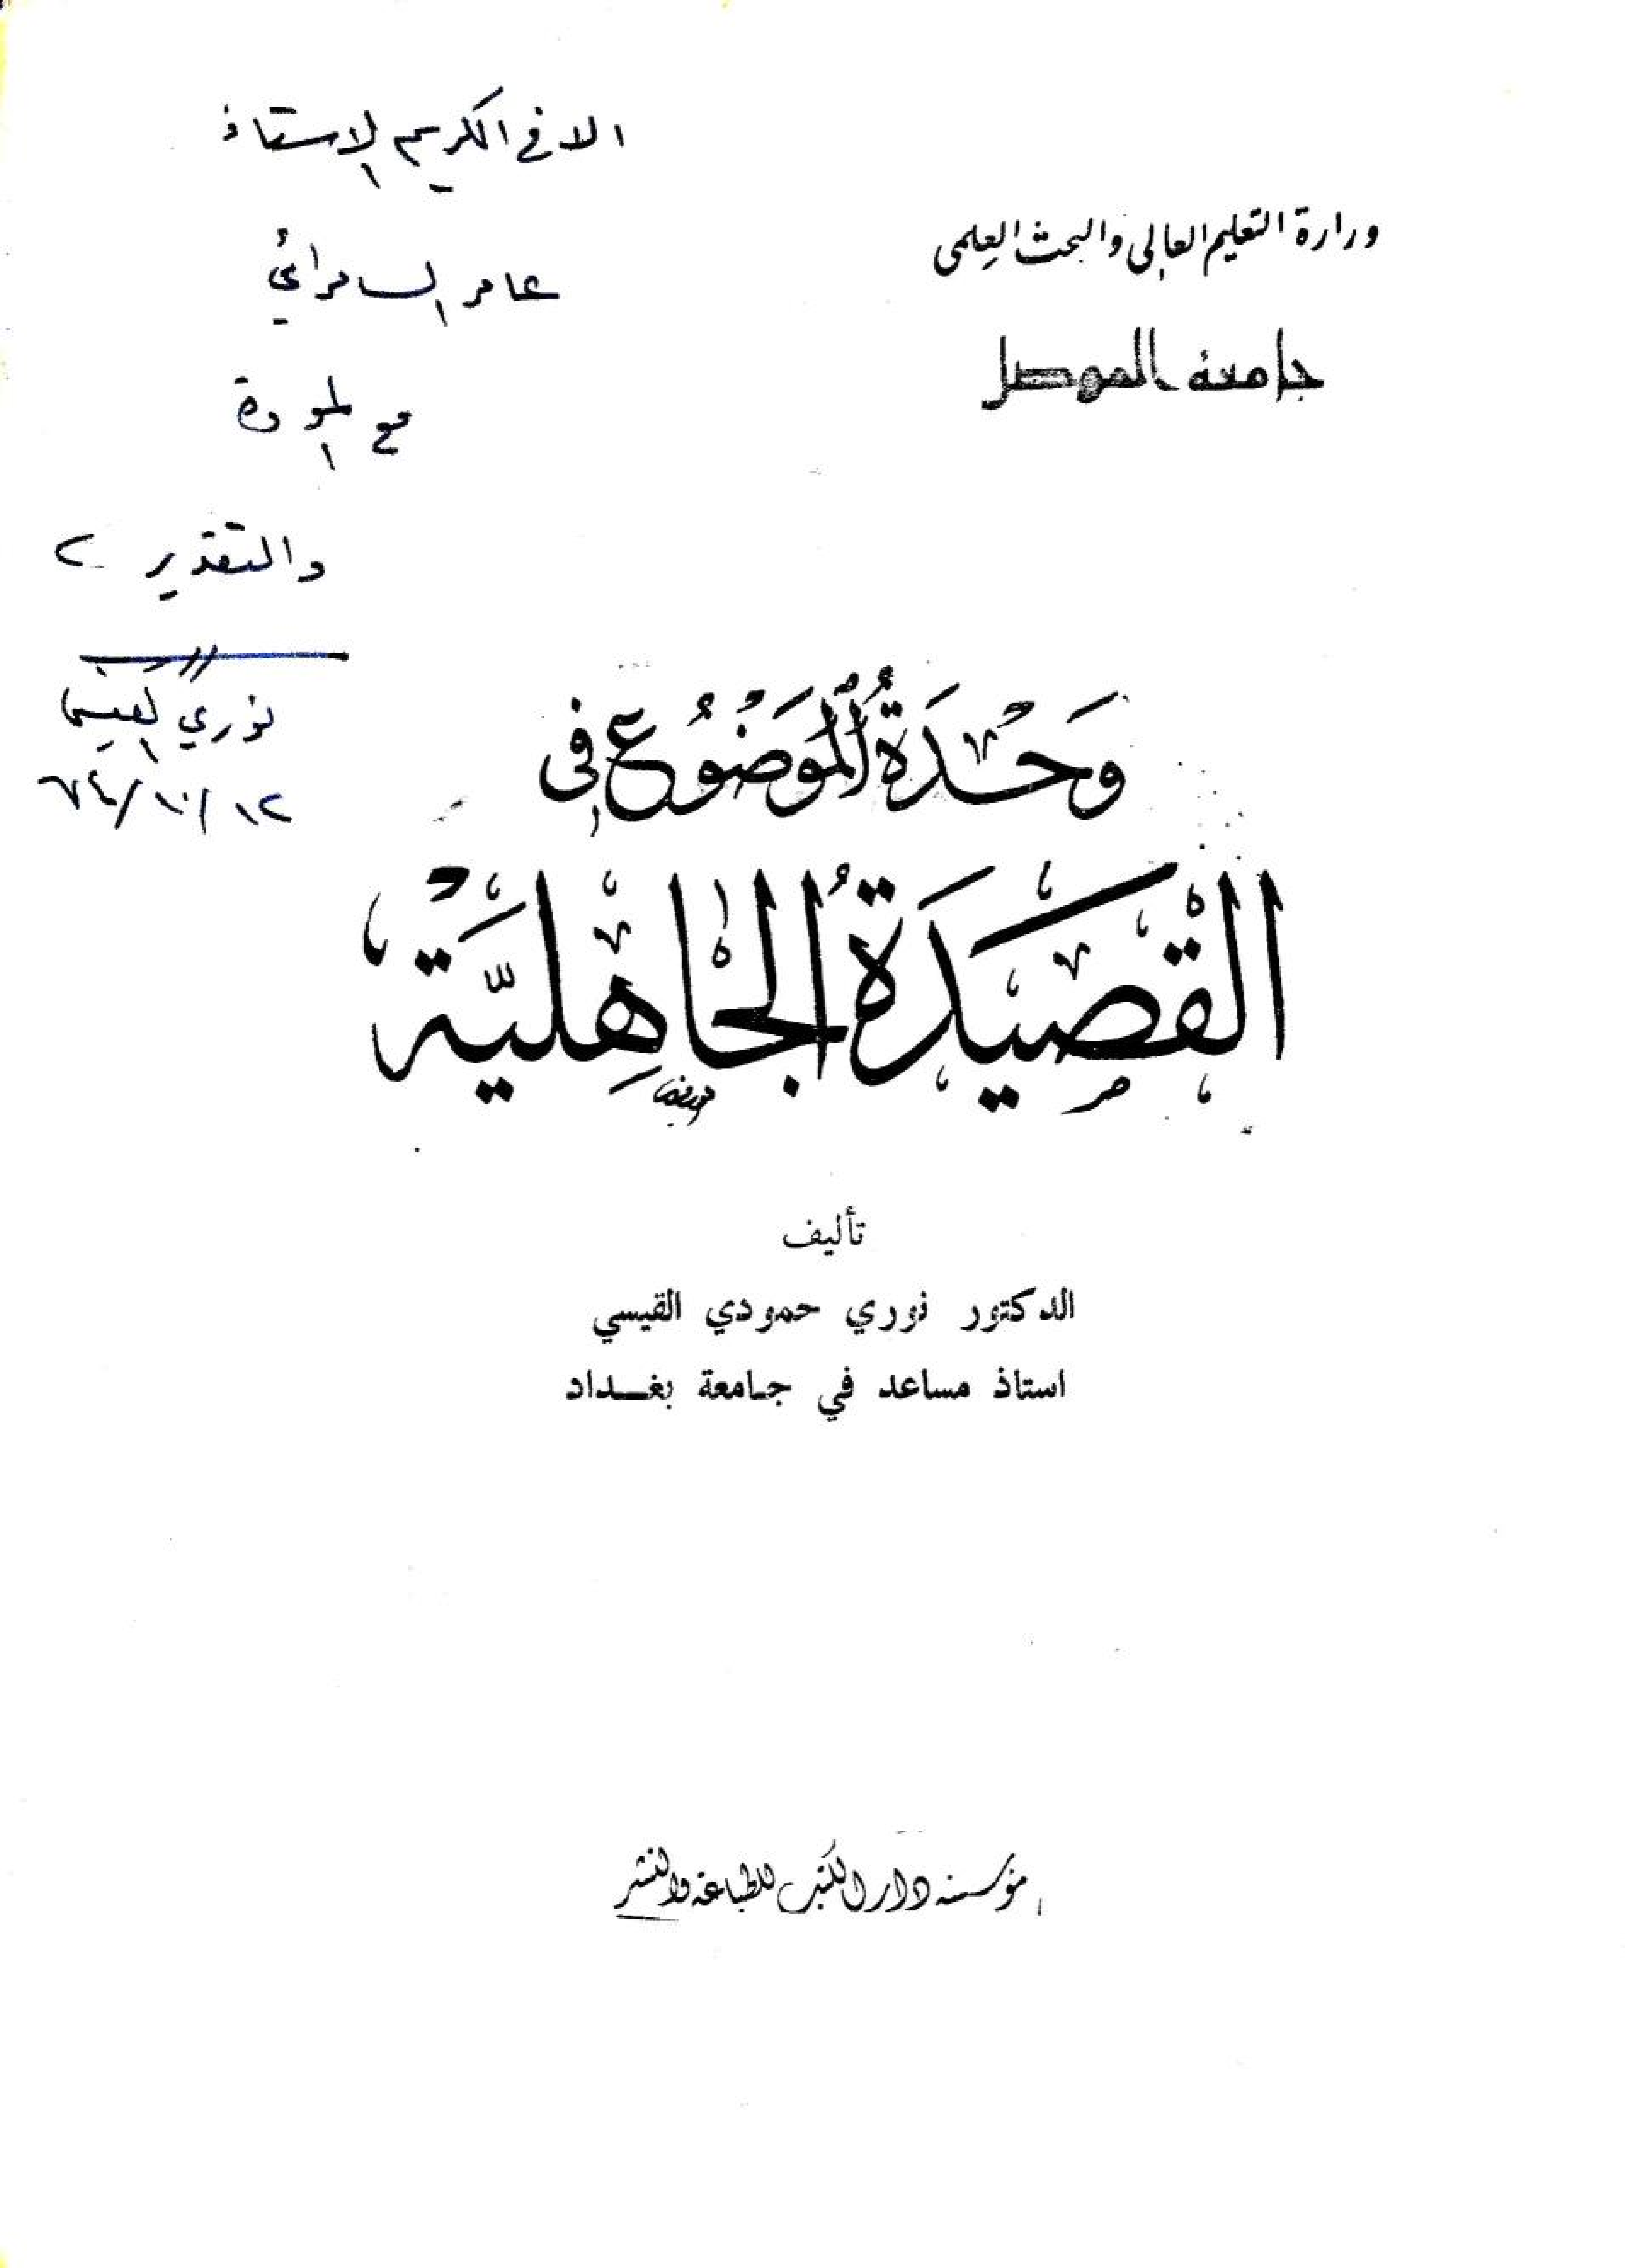 الاخ الكريم الاستاذ
عامر السامرائي
مع المودة
والتقدير
نوري القيسي
١٢/١٠/٧٤
وزارة التعليم العالي والبحث العلمي
جامعة الموصل
وَحْدَةُ المَوضُوع في
القَصِيدَةُ الجَاهِليَّة
تأليف
الدكتور نوري حمودي القيسي
استاذ مساعد في جامعة بغداد
مؤسسة دار الكتب للطباعة والنشر